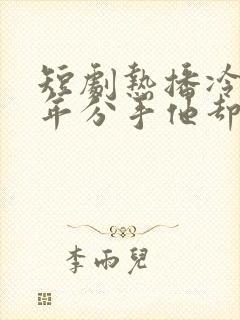 短劇熱播冷
年分手他却
李雨兒